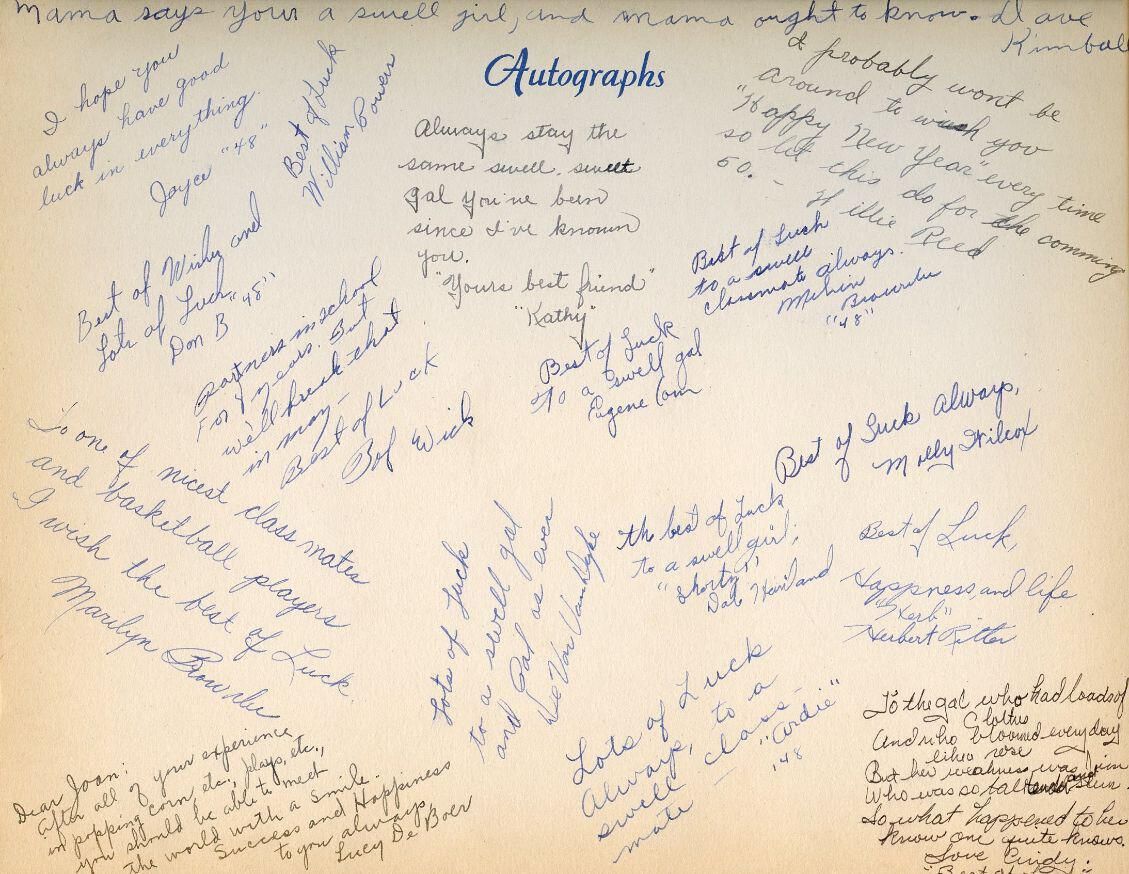 Mama says your a swell girl, and mama ought to know. Dave
Kimball
Autographs
I hope you
always have good
luck in everything.
Joyce "48"
Best of Luck
William Powers
Always stay the
same swell, sweet
gal you've been
since I've known
you.
"Yours best friend"
"Kathy"
I probably wont be
around to wish you
"Happy New Year" every time
so let this do for the comming
50. –
Willie Reed
Best of Wishes and
Lots of Luck
Don B "48"
Partners in school
For years. But
we'll break that
in may –
Best of Luck
Bob Wick
Best of Luck
to a swell
classmate always.
Melvin
Brownlee
"48"
Best of Luck
To a swell gal
Eugene
Best of Luck Always,
Molly Wilcox
To one of nicest class mates
and basketball players
I wish the best of Luck
Marilyn Brownlee
Lots of Luck
to a swell gal
and Pal as ever
th best of Luck
to a swell girl,
"Shorty"
Best of Luck,
Happness, and life
"Herb"
Herbert Ritter
Lots of Luck
Always, to a
swell class-
mate
"Ardie"
'48
Dear Joan:
After all of your experience
in popping corn etc., plays, etc.,
you should be able to meet
the world with a smile.
Success and Happiness
to you always
Lucy De Boer
To the gal who had loads of
Clothes
And who bloomed everyday
like a rose
But her weakness was Jim
Who was so tall and slim.
So what happened to her
know one quite knows.
Love Cindy.